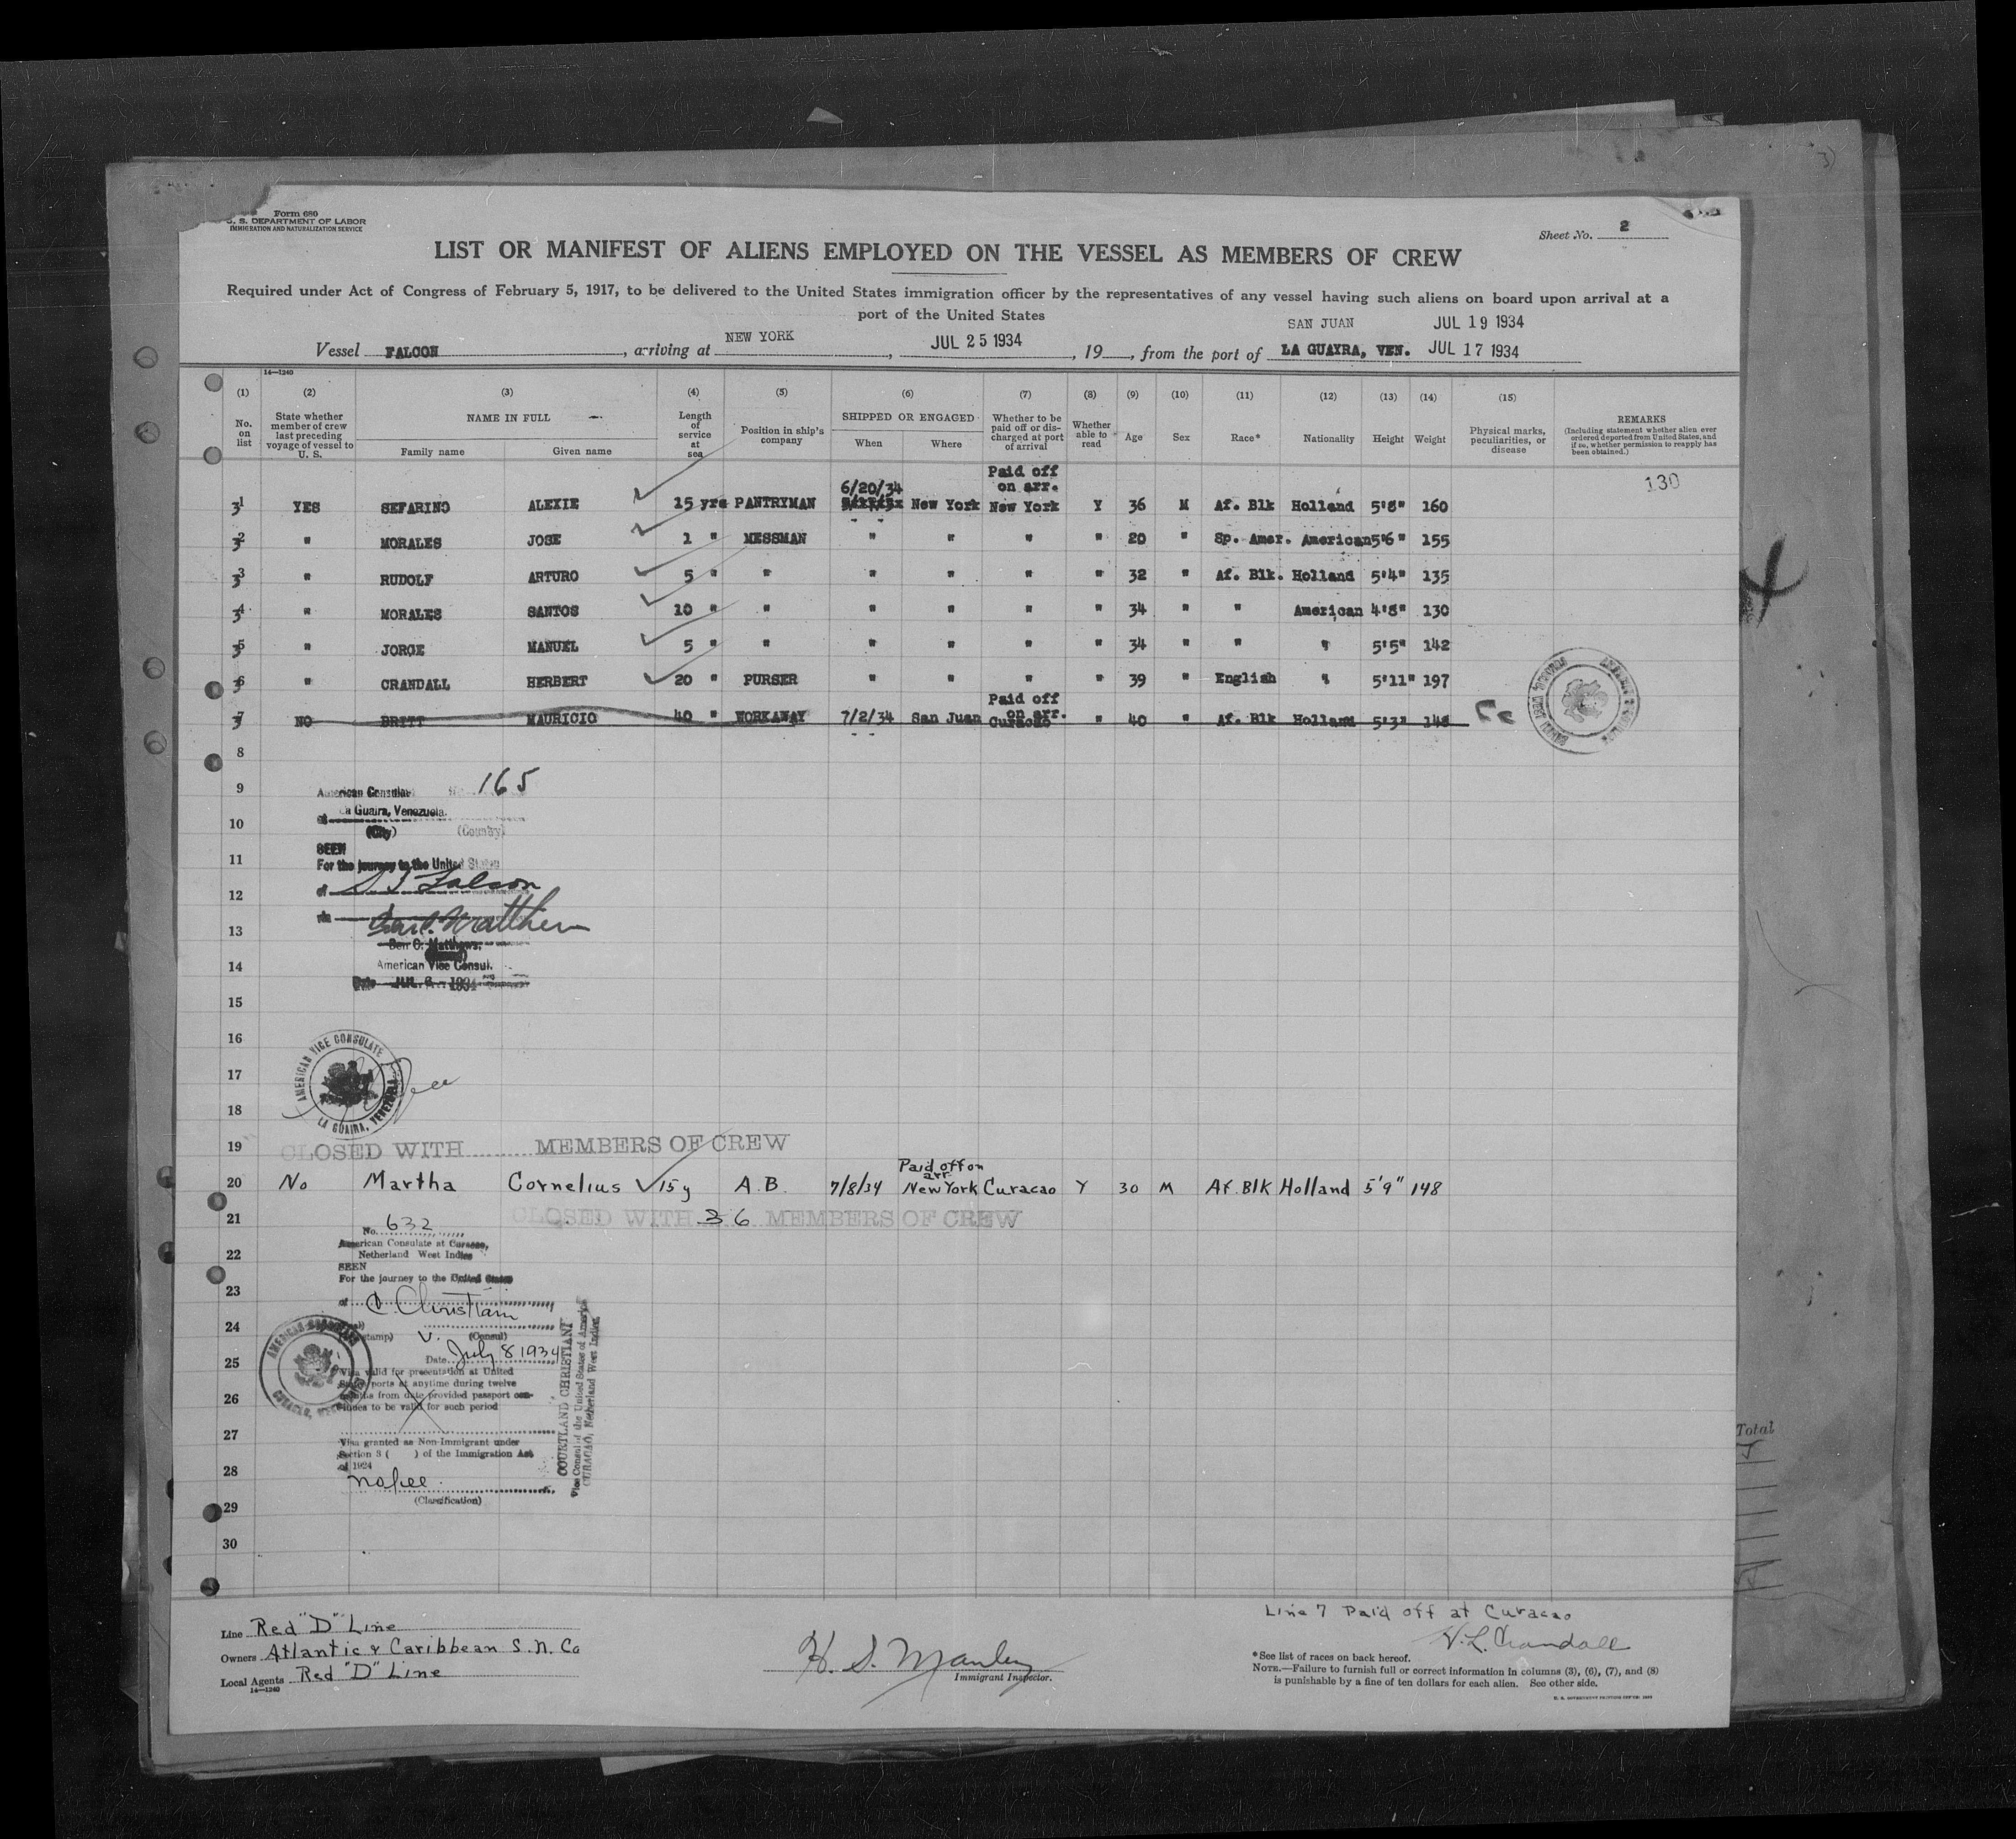 Form 680
U. S. DEPARTMENT OF LABOR
IMMIGRATION AND NATURALIZATION SERVICE
Sheet No. 2
LIST OR MANIFEST OF ALIENS EMPLOYED ON THE VESSEL AS MEMBERS OF CREW
Required under Act of Congress of February 5, 1917, to be delivered to the United States immigration officer by the representatives of any vessel having such aliens on board upon arrival at a
port of the United States
SAN JUAN JUL 19 1934
Vessel FALCON, arriving at NEW YORK, JUL 25 1934, 19, from the port of LA GUAYRA, VEN. JUL 17 1934
14—1240
(1) (2) (3) (4) (5) (6) (7) (8) (9) (10) (11) (12) (13) (14) (15)
No. on list
State whether member of crew last preceding voyage of vessel to U. S.
NAME IN FULL
Family name
Given name
Length of service at sea
Position in ship's company
SHIPPED OR ENGAGED
When
Where
Whether to be paid off or discharged at port of arrival
Whether able to read
Age
Sex
Race*
Nationality
Height
Weight
Physical marks, peculiarities, or disease
REMARKS
(Including statement whether alien ever ordered deported from United States, and if so, whether permission to reapply has been obtained.)
130
Paid off
6/20/34 on arr.
1 YES SEFARINO ALEXIE 15 yrs PANTRYMAN New York New York Y 36 M Af. Blk Holland 5'8" 160
2 " MORALES JOSE 1 " MESSMAN " " " " 20 " Sp. Amer. American 5'6" 155
3 " RUDOLF ARTURO 5 " " " " " " 32 " Af. Blk. Holland 5'4" 135
4 " MORALES SANTOS 10 " " " " " " 34 " " American 4'8" 130
5 " JORGE MANUEL 5 " " " " " " 34 " " " 5'5" 142
6 " CRANDALL HERBERT 20 " PURSER " " " " 39 " English " 5'11" 197
Paid off
on arr.
7 NO BRITT MAURICIO 40 " WORKAWAY 7/2/34 San Juan Curacao " 40 " Af. Blk Holland 5'3" 148
8
9
American Consulate 165
10
La Guaira, Venezuela.
(City) (Country)
11
SEEN
For the journey to the United States
12
of S S Falcon
13
via Ben C. Matthews
Ben C. Matthews,
14
American Vice Consul.
Date JUL 6 - 1934
15
16
17
AMERICAN VICE CONSULATE
LA GUAIRA, VENEZUELA
18
19
CLOSED WITH MEMBERS OF CREW
Paid off on
arr.
20 No Martha Cornelius 15 y A.B. 7/8/34 New York Curacao Y 30 M Af. Blk Holland 5'9" 148
21
CLOSED WITH 36 MEMBERS OF CREW
No. 632
22
American Consulate at Curacao,
Netherland West Indies
SEEN
For the journey to the United States
23
of C. Christiani
24
(Stamp) V. (Consul)
25
Date July 8 1934
Visa valid for presentation at United
States ports at anytime during twelve
26
months from date provided passport con-
tinues to be valid for such period
27
Visa granted as Non-Immigrant under
Section 3 ( ) of the Immigration Act
of 1924
28
no fee
(Classification)
COURTLAND CHRISTIANI
Vice Consul of the United States of America
CURACAO, Netherland West Indies
29
30
Line Red "D" Line
Owners Atlantic & Caribbean S. N. Co
Local Agents Red "D" Line
14—1240
H. S. Manley
Immigrant Inspector.
Line 7 Paid off at Curacao
H. L. Crandall
*See list of races on back hereof.
NOTE.—Failure to furnish full or correct information in columns (3), (6), (7), and (8)
is punishable by a fine of ten dollars for each alien. See other side.
U. S. GOVERNMENT PRINTING OFFICE
Total